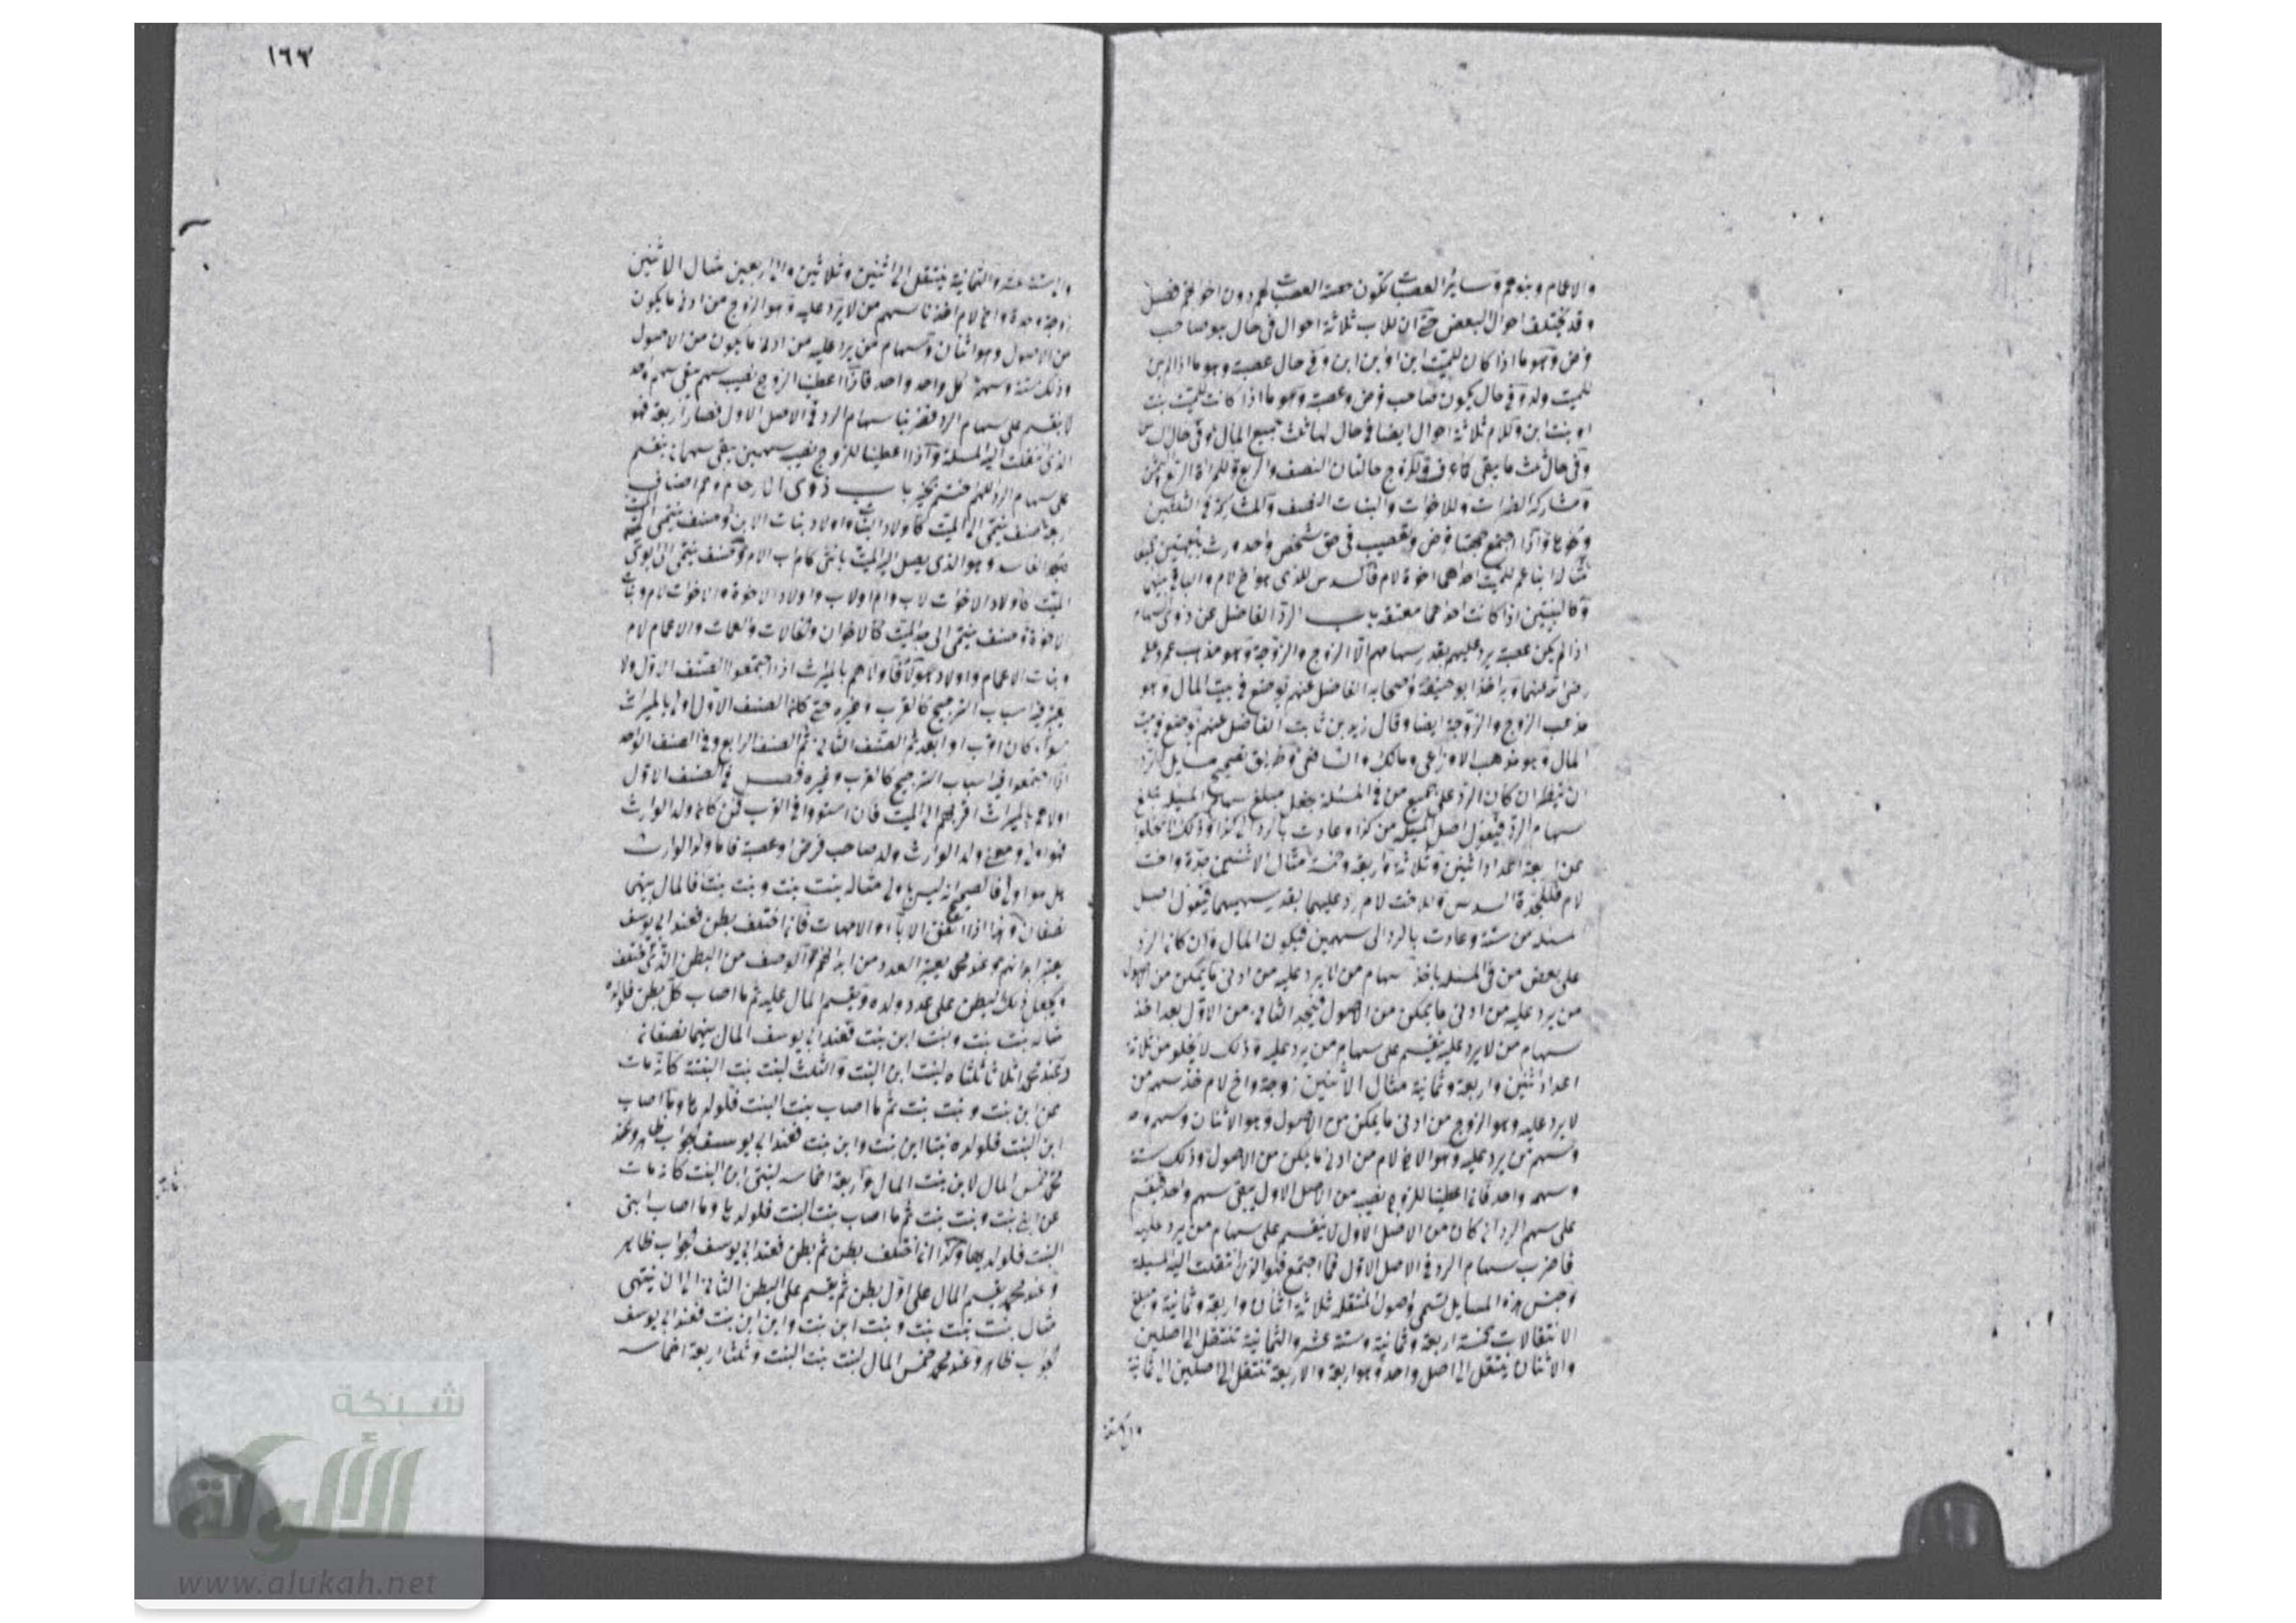 والاعمام وبنوهم وسائر العصبات تكون عصبة العصبات لهم دون اخواتهم فصل
وقد يختلف احوال البعض حتى ان للاب ثلاثة احوال في حال هو صاحب
فرض وهو ما اذا كان للميت ابن او ابن ابن وفي حال عصبة وهو ما اذا لم يكن
للميت ولد وفي حال يكون صاحب فرض وعصبة وهو ما اذا كانت للميت بنت
او بنت ابن وللام ثلاثة احوال ايضا في حال لها ثلث جميع المال وفي حال السدس
وفي حال ثلث ما يبقى كما عرف وللزوج حالتان النصف والربع وللمراة الربع والثمن
ومشاركة الضرات وللاخوات والبنات النصف والمشاركة في الثلثين
ونحوها واذا اجتمع جهتا فرض وتعصيب في حق شخص واحد ورث بالجهتين جميعا
مثاله ابنا عم للميت احدهما اخوه لام فالسدس للذي هو اخ لام والباقي بينهما
وكالبنتين اذا كانت احداهما معتقة باب الرد الفاضل عن ذوي السهام
اذا لم يكن عصبة يرد عليهم بقدر سهامهم الا الزوج والزوجة وهو مذهب عمر وعلي
رضي الله عنهما وبه اخذ ابو حنيفة واصحابه الفاضل عنهم يوضع في بيت المال وهو
مذهب الزوج والزوجة ايضا وقال زيد بن ثابت الفاضل عنهم يوضع في بيت
المال وهو مذهب الاوزاعي ومالك والشافعي وطريق تصحيح مسايل الرد
ان ينظر ان كان الرد على جميع من في المسئلة يجعل مبلغ سهام المسئلة مبلغ
سهام الرد فيقول اصل المسئلة من كذا وعادت بالرد الى كذا وذلك لا يخلوا
عن اربعة اعداد اثنين وثلاثة واربعة وخمسة مثال الاثنين جدة واخت
لام فللجدة السدس وللاخت لام رد عليهما بقدر سهميهما فيقول اصل
مسئلة من ستة وعادت بالرد الى سهمين فيكون المال وان كان الرد
على بعض من في المسئلة ياخذ سهام من لا يرد عليه من ادنى ما يمكن من الاصول
من يرد عليه من ادنى ما يمكن من الاصول فيجد الثاني من الاول بعد اخذ
سهام من لا يرد عليه يقسم على سهام من يرد عليه وذلك لا يخلو من ثلاثة
اعداد اثنين واربعة وثمانية مثال الاثنين زوجة واخ لام خذ سهم من
لا يرد عليه وهو الزوج من ادنى ما يمكن من الاصول وهو الاثنان وسهم
وسهم من يرد عليه وهو الاخ لام من ادنى ما يمكن من الاصول وذلك ستة
وسهمه واحد فاذا اعطينا للزوج نصيبه من الاصل الاول يبقى سهم واحد فيقسم
على سهم الرد ان كان من الاصل الاول لا ينقسم على سهام من يرد عليه
فاضرب سهام الرد في الاصل الاول فما اجتمع فهو الذي انتقلت اليه المسئلة
وجنس هذه المسايل تسمى واصول المنتقلة ثلاثة اثنان واربعة وثمانية ومبلغ
الانتقالات خمسة اربعة وثمانية وستة عشر والثمانية تنتقل الى اصلين
والاثنان ينتقل الى اصل واحد وهو اربعة والاربعة تنتقل الى اصلين الى ثمانية
والى ستة
١٦٣
والى ستة عشر والثمانية ينتقل الى اثنين وثلاثين والى اربعين مثال الاثنين
زوجة وجدة واخ لام اخذنا سهم من لا يرد عليه وهو الزوج من ادنى ما يكون
من الاصول وهو اثنان وسهام من يرد عليه من ادنى ما يكون من الاصول
وذلك ستة وسهم كل واحد واحد فاذا اعطينا الزوج نصيبه سهم بقي سهم واحد
لا ينقسم على سهام الرد فضربنا سهام الرد في الاصل الاول فصار اربعة فهو
الذي انتقلت اليه المسئلة واذا اعطينا للزوج نصيبه سهمين بقي سهمان ينقسم
على سهام الرد باب ذوي الارحام وهم اصناف
اربعة صنف ينتمي الى الميت كاولاد البنات واولاد بنات الابن وصنف ينتمي اليه الميت
كالجد الفاسد وهو الذي يصل الى الميت بانثى كاب الام وصنف ينتمي الى ابوي
الميت كاولاد الاخوات لاب وام اولاب واولاد الاخوة والاخوات لام وبنات
الاخوة وصنف ينتمي الى جد الميت كالاخوال والخالات والعمات والاعمام لام
وبنات الاعمام واولاد هؤلاء فاولاهم بالميراث اذا اجتمعوا الصنف الاول ولا
يعتبر فيه اسباب الترجيح كالقرب وغيره حتى كان الصنف الاول اولى بالميراث
سواء كان اقرب او ابعد ثم الصنف الثاني ثم الصنف الرابع وفي الصنف الواحد
اذا اجتمعوا فيه اسباب الترجيح كالقرب وغيره فصل في الصنف الاول
اولاهم بالميراث اقربهم الى الميت فان استووا في القرب فمن كان ولد الوارث
فهو اولى ومعنى ولد الوارث ولد صاحب فرض او عصبة فاما ولد الوارث
هل هو اولى فالصحيح انه ليس باولى مثاله بنت بنت وبنت بنت فالمال بينهما
نصفان وهذا اذا اتفق الاباء والامهات فان اختلف بطن فعند ابي يوسف
يعتبر ابدانهم وعند محمد يعتبر العدد من ابدانهم والوصف من البطن الذي اختلف
ويجعل ذلك البطن على عدد ولده ويقسم المال عليه ثم ما اصاب كل بطن فلولده
مثاله بنت بنت وبنت ابن بنت فعند ابي يوسف المال بينهما نصفان
وعند محمد اثلاثا ثلثاه لبنت ابن البنت والثلث لبنت بنت البنت كانه مات
عن ابن بنت وبنت بنت ثم ما اصاب بنت البنت فلولدها وما اصاب
ابن البنت فلولده بنتا ابن بنت وابن بنت فعند ابي يوسف الجواب ظاهر وعند
محمد خمس المال لابن بنت المال واربعة اخماسه لبنتي ابن البنت كانه مات
عن ابني بنت وبنت بنت ثم ما اصاب بنت البنت فلولدها وما اصاب ابني
البنت فلولديهما وكذا ان اختلف بطن ثم بطن فعند ابي يوسف الجواب ظاهر
وعند محمد يقسم المال على اول بطن ثم يقسم على البطن الثاني الى ان ينتهي
مثال بنت بنت بنت وبنت ابن بنت وابن ابن بنت فعند ابي يوسف
الجواب ظاهر وعند محمد خمس المال لبنت بنت البنت وثلثا اربعة اخماسه
شبكة
الألوكة
www.alukah.net